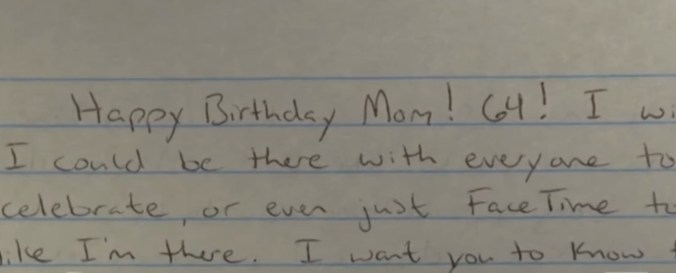 Happy Birthday Mom! 64! I
I could be there with everyone to
celebrate, or even just FaceTime to
like I'm there. I want you to know